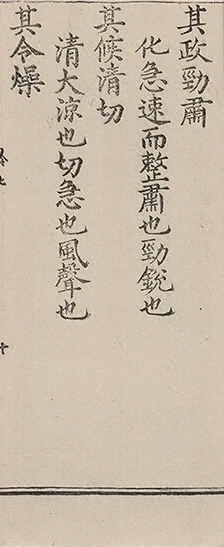 其政勁肅
化急速而整肅也勁銳也
其候清切
清大涼也切急也風聲也
其令燥